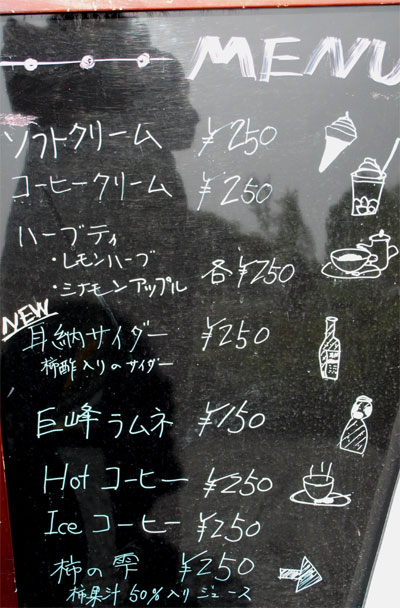 MENU
ソフトクリーム ¥250
コーヒークリーム ¥250
ハーブティ
・レモンハーブ
・シナモンアップル 各¥250
NEW
耳納サイダー ¥250
柿酢入りのサイダー
巨峰ラムネ ¥150
Hot コーヒー ¥250
Ice コーヒー ¥250
柿の雫 ¥250
柿果汁50%入りジュース